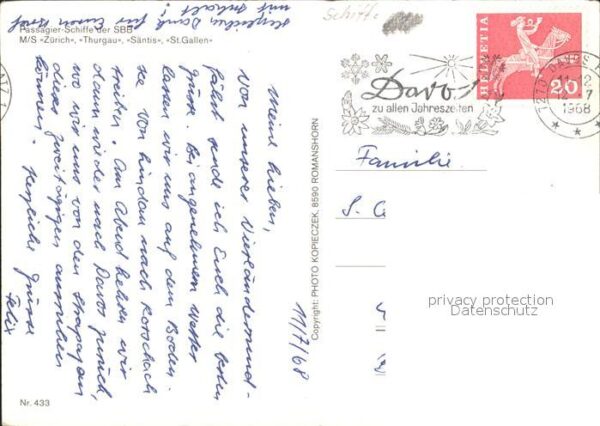 Passagier-Schiffe der SBB
M/S «Zürich», «Thurgau», «Säntis», «St.Gallen»
Herzlichen Dank für Euren Brief
mit Inhalt!
Schiffe
11/7/68
Meine Lieben,
Von unserer Vierländerrund-
fahrt sende ich Euch die besten
Grüsse. Bei angenehmem Wetter
lassen wir uns auf dem Boden-
see von Lindau nach Rorschach
treiben. Am Abend kehren wir
dann wieder nach Davos zurück,
wo wir uns von den Strapazen
dieser zweitägigen ausruhen
können. Herzliche Grüsse
Felix
Nr. 433
Copyright: PHOTO KOPIECZEK, 8590 ROMANSHORN
Davos
zu allen Jahreszeiten
HELVETIA
20
7270 DAVOS
11-12
7
1968
Familie
S.
privacy protection
Datenschutz